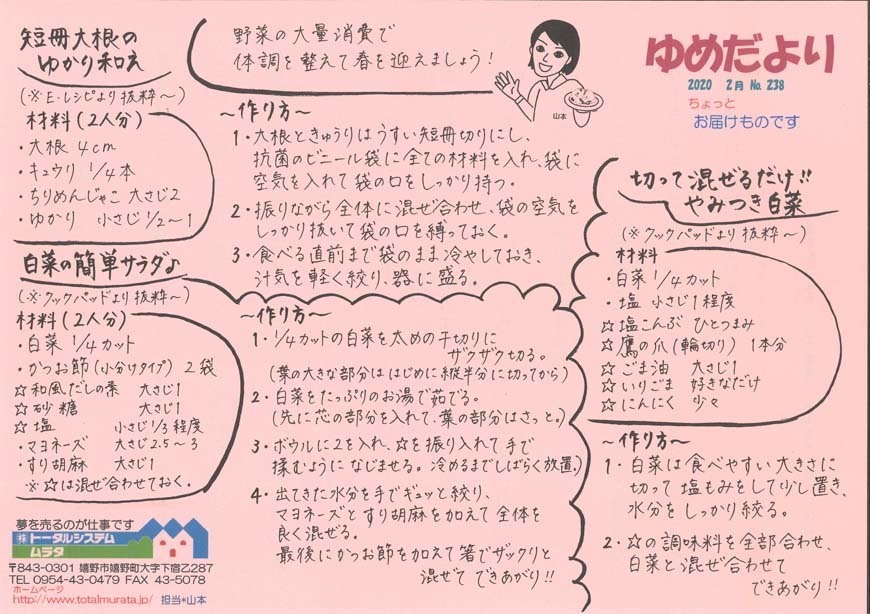 ゆめだより
2020 2月 No.238
ちょっと
お届けものです
野菜の大量消費で
体調を整えて春を迎えましょう!
山本
短冊大根の
ゆかり和え
(※E・レシピより抜粋〜)
材料(2人分)
・大根 4cm
・キュウリ 1/4本
・ちりめんじゃこ 大さじ2
・ゆかり 小さじ1/2〜1
〜作り方〜
1・大根ときゅうりはうすい短冊切りにし、
抗菌のビニール袋に全ての材料を入れ、袋に
空気を入れて袋の口をしっかり持つ。
2・振りながら全体に混ぜ合わせ、袋の空気を
しっかり抜いて袋の口を縛っておく。
3・食べる直前まで袋のまま冷やしておき、
汁気を軽く絞り、器に盛る。
白菜の簡単サラダ♪
(※クックパッドより抜粋〜)
材料(2人分)
・白菜 1/4カット
・かつお節(小分けタイプ) 2袋
☆和風だしの素 大さじ1
☆砂糖 大さじ1
☆塩 小さじ1/3程度
・マヨネーズ 大さじ2.5〜3
・すり胡麻 大さじ1
※☆は混ぜ合わせておく。
〜作り方〜
1・1/4カットの白菜を太めの千切りに
ザクザク切る。
(葉の大きな部分ははじめに縦半分に切ってから)
2・白菜をたっぷりのお湯で茹でる。
(先に芯の部分を入れて、葉の部分はさっと。)
3・ボウルに2を入れ、☆を振り入れて手で
揉むようになじませる。冷めるまでしばらく放置。
4・出てきた水分を手でギュッと絞り、
マヨネーズとすり胡麻を加えて全体を
良く混ぜる。
最後にかつお節を加えて箸でザックリと
混ぜてできあがり!!
切って混ぜるだけ!!
やみつき白菜
(※クックパッドより抜粋〜)
材料
・白菜 1/4カット
・塩 小さじ1程度
☆塩こんぶ ひとつまみ
☆鷹の爪(輪切り) 1本分
☆ごま油 大さじ1
☆いりごま 好きなだけ
☆にんにく 少々
〜作り方〜
1・白菜は食べやすい大きさに
切って塩もみをして少し置き、
水分をしっかり絞る。
2・☆の調味料を全部合わせ、
白菜と混ぜ合わせて
できあがり!!
夢を売るのが仕事です
㈱トータルシステム
ムラタ
〒843-0301 嬉野市嬉野町大字下宿乙287
TEL 0954-43-0479 FAX 43-5078
ホームページ
http://www.totalmurata.jp/ 担当*山本